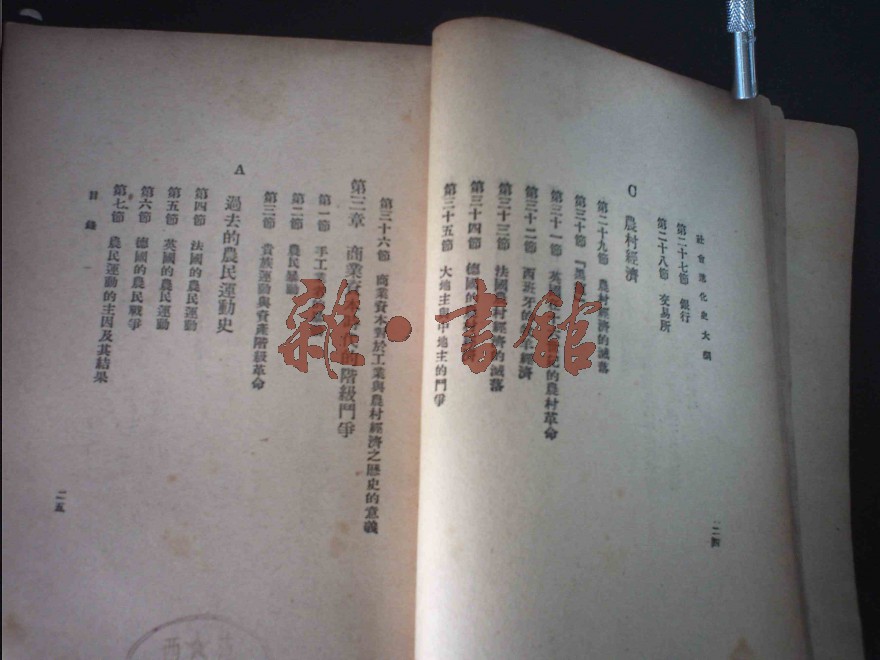 社會進化史大綱
第二十七節 銀行
第二十八節 交易所
C 農村經濟
第二十九節 農村經濟的滅落
第三十節 『黑
第三十一節 英國 的農村革命
第三十二節 西班牙的 經濟
第三十三節 法國 村經濟的滅落
第三十四節 德國的
第三十五節 大地主與中地主的鬥爭
二四
第三十六節 商業資本對於工業與農村經濟之歷史的意義
第三章 商業資 的階級鬥爭
第一節 手工業
第二節 農民運動
第三節 貴族運動與資產階級革命
A 過去的農民運動史
第四節 法國的農民運動
第五節 英國的農民運動
第六節 德國的農民戰爭
第七節 農民運動的主因及其結果
目錄
二五
雜·書館